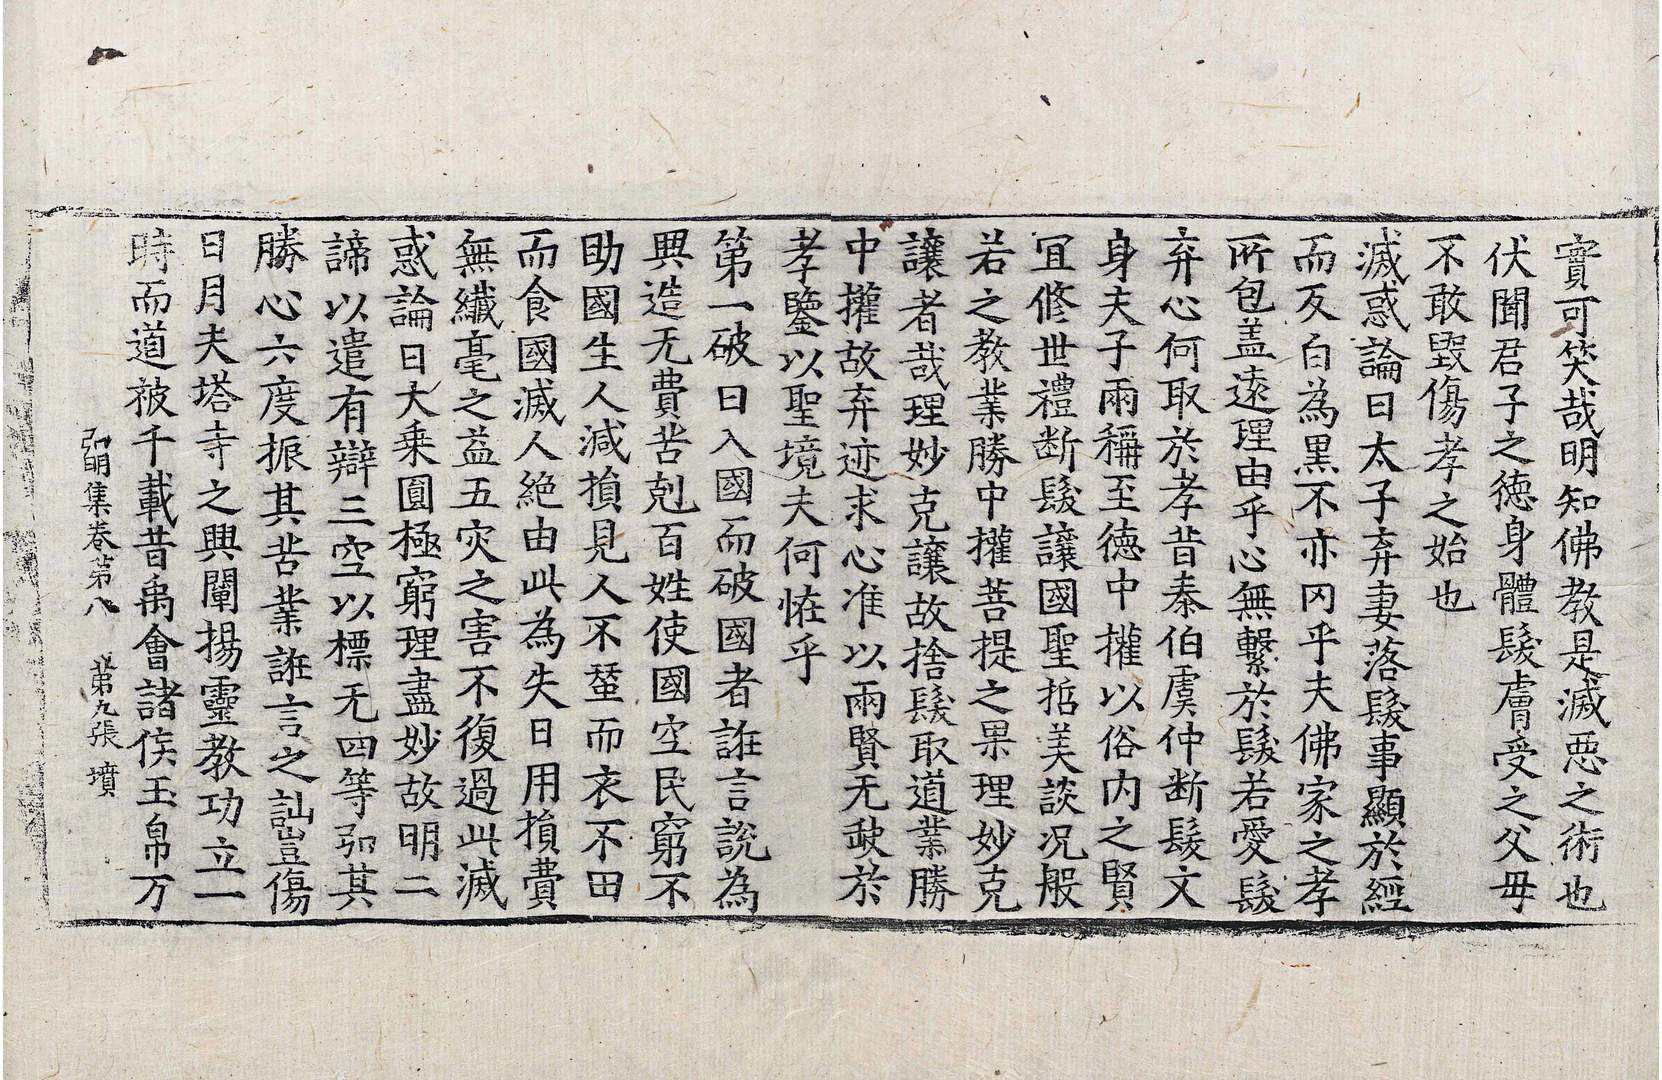 實可笑哉明知佛教是滅惡之術也
伏聞君子之德身體髮膚受之父母
不敢毀傷孝之始也
滅惑論曰太子弃妻落髮事顯於經
而反白為黑不亦罔乎夫佛家之孝
所包盖遠理由乎心無繫於髮若愛髮
弃心何取於孝昔泰伯虞仲断髮文
身夫子兩稱至德中權以俗内之賢
宜修世禮断髮讓國聖哲美談况般
若之教業勝中權菩提之果理妙克
讓者哉理妙克讓故捨髮取道業勝
中權故弃迹求心准以兩賢无𡙇於
孝鑒以聖境夫何恠乎
第一破曰入國而破國者誑言說為
興造无費苦剋百姓使國空民窮不
助國生人減損見人不蚕而衣不田
而食國滅人絶由此為失日用損費
無纎毫之益五灾之害不復過此滅
惑論曰大乗圓極窮理盡妙故明二
諦以遣有辯三空以標无四等弘其
勝心六度振其苦業誑言之訕豈傷
日月夫塔寺之興闡揚靈教功立一
時而道被千載昔禹會諸侯玉帛万
弘明集卷第八 第九張 墳